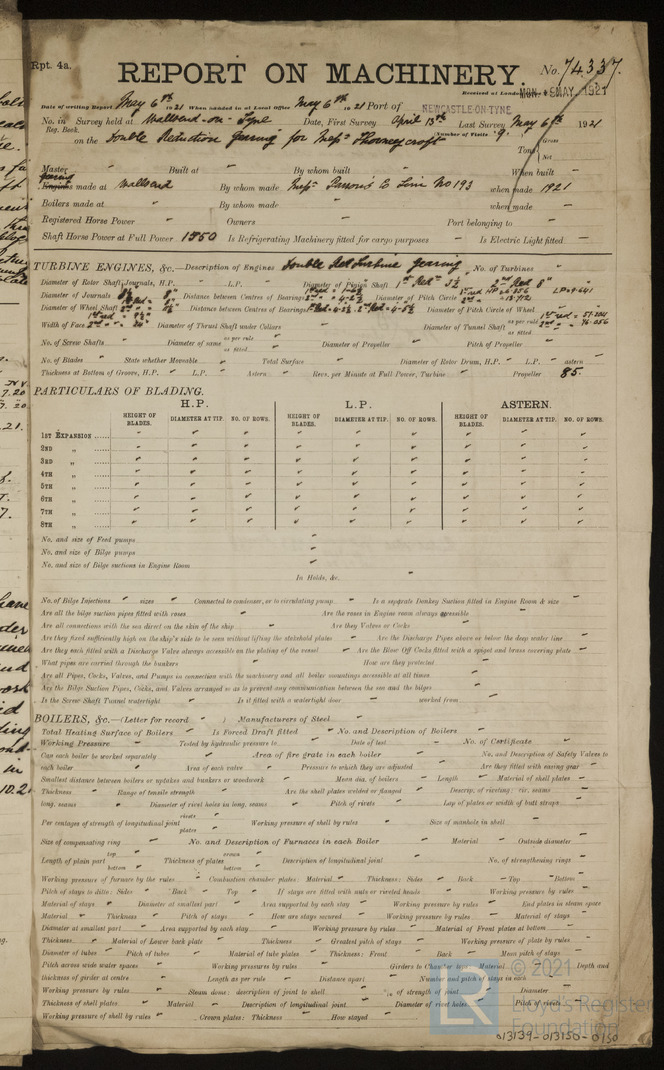 Rpt. 4a.
REPORT ON MACHINERY. No. 74337.
Received at London MON. 9 MAY. 1921
Date of writing Report May 6th 1921 When handed in at Local Office May 6th 1921 Port of NEWCASTLE-ON-TYNE
No. in Survey held at Wallsend-on-Tyne Date, First Survey April 13th Last Survey May 6th 1921
Reg. Book. (Number of Visits 9)
on the Double Reduction gearing for Messrs Thornycroft Tons Gross Net
Master Built at By whom built When built
gearing
Engines made at Wallsend By whom made Messrs Parsons Co Line No 193 when made 1921
Boilers made at By whom made when made
Registered Horse Power Owners Port belonging to
Shaft Horse Power at Full Power 1550 Is Refrigerating Machinery fitted for cargo purposes Is Electric Light fitted
TURBINE ENGINES, &c.—Description of Engines Double Red Turbine gearing No. of Turbines
Diameter of Rotor Shaft Journals, H.P. L.P. Diameter of Pinion Shaft
Diameter of Journals Distance between Centres of Bearings Diameter of Pitch Circle
Diameter of Wheel Shaft Distance between Centres of Bearings Diameter of Pitch Circle of Wheel
Width of Face Diameter of Thrust Shaft under Collars Diameter of Tunnel Shaft as per rule as fitted
No. of Screw Shafts Diameter of same as per rule as fitted Diameter of Propeller Pitch of Propeller
No. of Blades State whether Moveable Total Surface Diameter of Rotor Drum, H.P. L.P. astern
Thickness at Bottom of Groove, H.P. L.P. Astern Revs. per Minute at Full Power, Turbine Propeller 85.
PARTICULARS OF BLADING.
H.P. L.P. ASTERN.
HEIGHT OF BLADES. DIAMETER AT TIP. NO. OF ROWS. HEIGHT OF BLADES. DIAMETER AT TIP. NO. OF ROWS. HEIGHT OF BLADES. DIAMETER AT TIP. NO. OF ROWS.
1ST EXPANSION
2ND „
3RD „
4TH „
5TH „
6TH „
7TH „
8TH „
No. and size of Feed pumps
No. and size of Bilge pumps
No. and size of Bilge suctions in Engine Room
In Holds, &c.
No. of Bilge Injections sizes Connected to condenser, or to circulating pump Is a separate Donkey Suction fitted in Engine Room & size
Are all the bilge suction pipes fitted with roses Are the roses in Engine room always accessible
Are all connections with the sea direct on the skin of the ship Are they Valves or Cocks
Are they fixed sufficiently high on the ship's side to be seen without lifting the stokehold plates Are the Discharge Pipes above or below the deep water line
Are they each fitted with a Discharge Valve always accessible on the plating of the vessel Are the Blow Off Cocks fitted with a spigot and brass covering plate
What pipes are carried through the bunkers How are they protected
Are all Pipes, Cocks, Valves, and Pumps in connection with the machinery and all boiler mountings accessible at all times
Are the Bilge Suction Pipes, Cocks, and Valves arranged so as to prevent any communication between the sea and the bilges
Is the Screw Shaft Tunnel watertight Is it fitted with a watertight door worked from
BOILERS, &c.—(Letter for record ) Manufacturers of Steel
Total Heating Surface of Boilers Is Forced Draft fitted No. and Description of Boilers
Working Pressure Tested by hydraulic pressure to Date of test No. of Certificate
Can each boiler be worked separately Area of fire grate in each boiler No. and Description of Safety Valves to
each boiler Area of each valve Pressure to which they are adjusted Are they fitted with easing gear
Smallest distance between boilers or uptakes and bunkers or woodwork Mean dia. of boilers Length Material of shell plates
Thickness Range of tensile strength Are the shell plates welded or flanged Descrip. of riveting: cir. seams
long. seams Diameter of rivet holes in long. seams Pitch of rivets Lap of plates or width of butt straps
Per centages of strength of longitudinal joint rivets plates Working pressure of shell by rules Size of manhole in shell
Size of compensating ring No. and Description of Furnaces in each Boiler Material Outside diameter
Length of plain part top bottom Thickness of plates crown bottom Description of longitudinal joint No. of strengthening rings
Working pressure of furnace by the rules Combustion chamber plates: Material Thickness: Sides Back Top Bottom
Pitch of stays to ditto: Sides Back Top If stays are fitted with nuts or riveted heads Working pressure by rules
Material of stays Diameter at smallest part Area supported by each stay Working pressure by rules End plates in steam space
Material Thickness Pitch of stays How are stays secured Working pressure by rules Material of stays
Diameter at smallest part Area supported by each stay Working pressure by rules Material of Front plates at bottom
Thickness Material of Lower back plate Thickness Greatest pitch of stays Working pressure of plate by rules
Diameter of tubes Pitch of tubes Material of tube plates Thickness: Front Back Mean pitch of stays
Pitch across wide water spaces Working pressures by rules Girders to Chamber tops: Material Depth and
thickness of girder at centre Length as per rule Distance apart Number and pitch of stays in each
Working pressure by rules Steam dome: description of joint to shell % of strength of joint Diameter
Thickness of shell plates Material Description of longitudinal joint Diameter of rivet holes Pitch of rivets
Working pressure of shell by rules Crown plates: Thickness How stayed
© 2021
Lloyd's Register
Foundation
013139-013150-0150